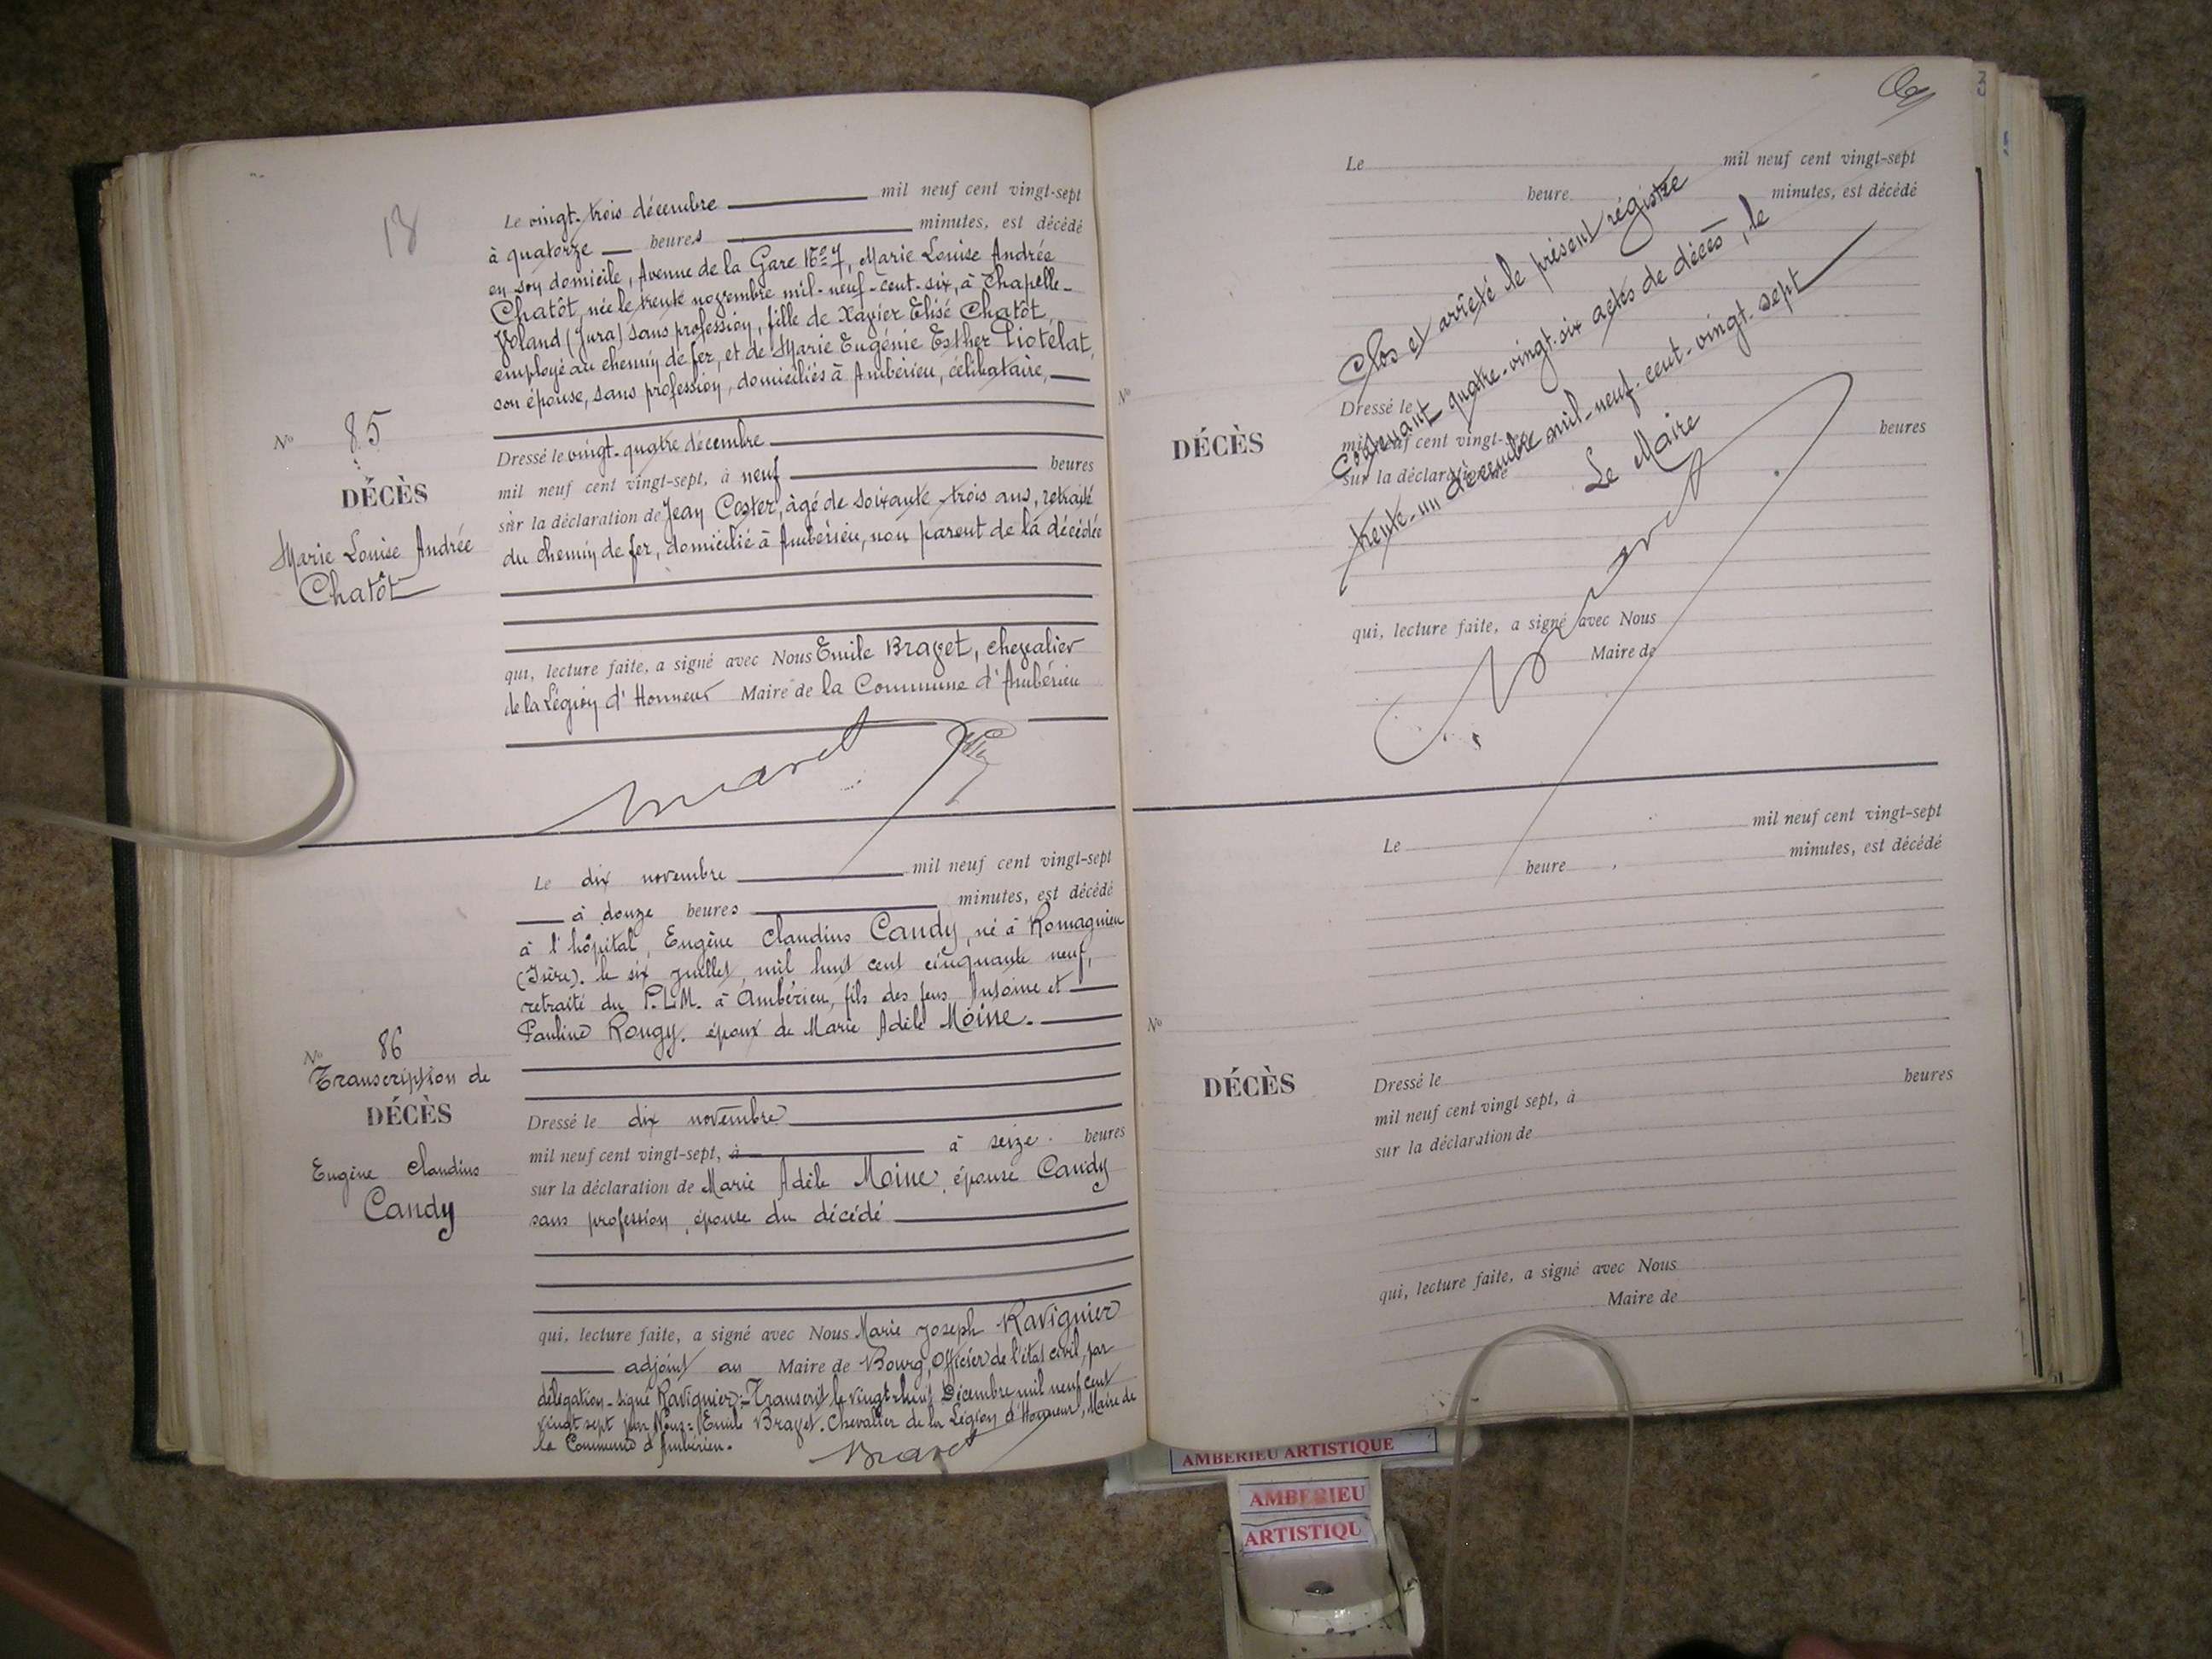 18
Le vingt-trois décembre mil neuf cent vingt-sept
à quatorze heures minutes, est décédé
en son domicile, Avenue de la Gare Nº 7, Marie Louise Andrée
Chatôt, née le trente novembre mil-neuf-cent-six, à Chapelle-
Voland (Jura) sans profession, fille de Xavier Elisé Chatôt,
employé au chemin de fer, et de Marie Eugénie Esther Piotélat,
son épouse, sans profession, domiciliés à Ambérieu, célibataire,
Nº 85
DÉCÈS
Marie Louise Andrée
Chatôt
Dressé le vingt-quatre décembre
mil neuf cent vingt-sept, à neuf heures
sur la déclaration de Jean Coster, âgé de soixante-trois ans, retraité
du chemin de fer, domicilié à Ambérieu, non parent de la décédée
qui, lecture faite, a signé avec Nous Emile Bravet, chevalier
de la Légion d'Honneur Maire de la Commune d'Ambérieu
Bravet
Le dix novembre mil neuf cent vingt-sept
à douze heures minutes, est décédé
à l'hôpital, Eugène Claudius Candy, né à Romagnieu
(Isère). le six juillet mil huit cent cinquante neuf,
retraité du P.L.M. à Ambérieu, fils des feus Antoine et
Pauline Rougy. époux de Marie Adèle Moine.
Nº 86
Transcription de
DÉCÈS
Eugène Claudius
Candy
Dressé le dix novembre
mil neuf cent vingt-sept, à à seize heures
sur la déclaration de Marie Adèle Moine, épouse Candy
sans profession, épouse du décédé
qui, lecture faite, a signé avec Nous Marie Joseph Ravignier
adjoint au Maire de Bourg, Officier de l'état civil, par
délégation - signé Ravignier: - Transcrit le vingt-neuf Décembre mil neuf cent
vingt sept par Nous: Emile Bravet. Chevalier de la Légion d'Honneur, Maire de
la Commune d'Ambérieu.
Bravet
Le mil neuf cent vingt-sept
heure minutes, est décédé
Clos et arrêté le présent régistre
Contenant quatre-vingt-six actes de décès, le
trente-un décembre mil-neuf-cent-vingt-sept
Le Maire
Bravet
Nº
DÉCÈS
Dressé le
mil neuf cent vingt-sept heures
sur la déclaration de
qui, lecture faite, a signé avec Nous
Maire de
Le mil neuf cent vingt-sept
heure minutes, est décédé
Nº
DÉCÈS
Dressé le
mil neuf cent vingt sept, à heures
sur la déclaration de
qui, lecture faite, a signé avec Nous
Maire de
AMBERIEU ARTISTIQUE
AMBERIEU
ARTISTIQU